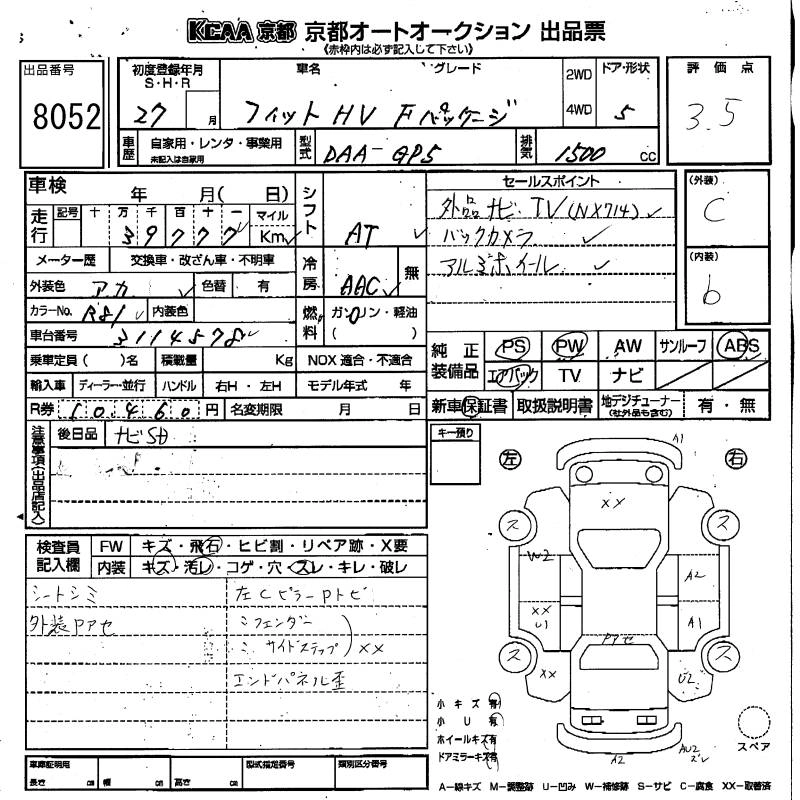 KCAA 京都 京都オートオークション 出品票
《赤枠内は必ず記入して下さい》
出品番号
8052
初度登録年月
S・H・R
27 月
車名 グレード
フィット HV Fパッケージ
2WD
4WD
ドア・形状
5
評価点
3.5
車歴
自家用・レンタ・事業用
未記入は自家用
型式
DAA-GP5
排気
1500 cc
車検 年 月( 日)
走行
記号 十 万 千 百 十 一 マイル
39777 Km
メーター歴 交換車・改ざん車・不明車
外装色 アカ 色替 有
カラーNo. R81 内装色
車台番号 3114578
乗車定員( )名 積載量 Kg
輸入車 ディーラー・並行 ハンドル 右H・左H
R券 10460 円 名変期限 月 日
シフト AT
冷房 AAC 無
燃料 ガソリン・軽油
( )
NOX 適合・不適合
モデル年式 年
セールスポイント
外品ナビ TV(NX714)
バックカメラ
アルミホイール
(外装)
C
(内装)
b
純正装備品
PS PW AW サンルーフ ABS
エアバック TV ナビ
新車保証書 取扱説明書 地デジチューナー 有・無
(社外品も含む)
注意事項(出品店記入)
後日品 ナビSD
キー預り
左 右
検査員記入欄
FW キズ・飛石・ヒビ割・リペア跡・X要
内装 キズ・汚レ・コゲ・穴・スレ・キレ・破レ
シートシミ
外装Pアセ
左CピラーPトビ
ミ フェンダー
ミ サイドステップ XX
エンドパネル歪
A1
XX
ス ス
W2
A2
XX
U1
A1
Pアセ
ス ス
XX
U2
A2
AU2
スレ
小キズ 有
小U 有
ホイールキズ 有
ドアミラーキズ 有
スペア
車庫証明用
長さ cm 幅 cm 高さ cm
型式指定番号
類別区分番号
A-線キズ M-調整跡 U-凹み W-補修跡 S-サビ C-腐食 XX-取替済